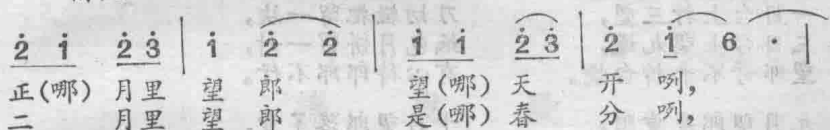 2̇ 1̇ 2̇ 3̇ | 1̇ 2̇ 2̇ | 1̇ 1̇ 2̇ 3̇ | 2̇ 1̇ 6 · |
正(哪) 月里 望 郎 望(哪) 天 开 咧,
二 月里 望 郎 是(哪) 春 分 咧,